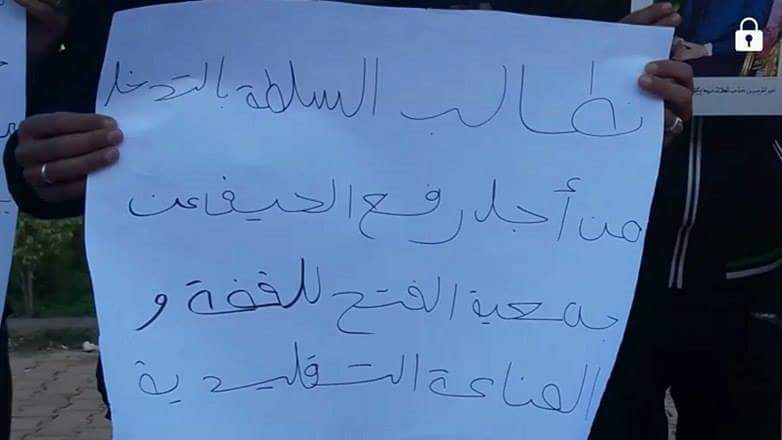 نطالب السلطة بالتدخل
من أجل رفع الحيف عن
جمعية الفتح للقفة و
الصناعة التقليدية